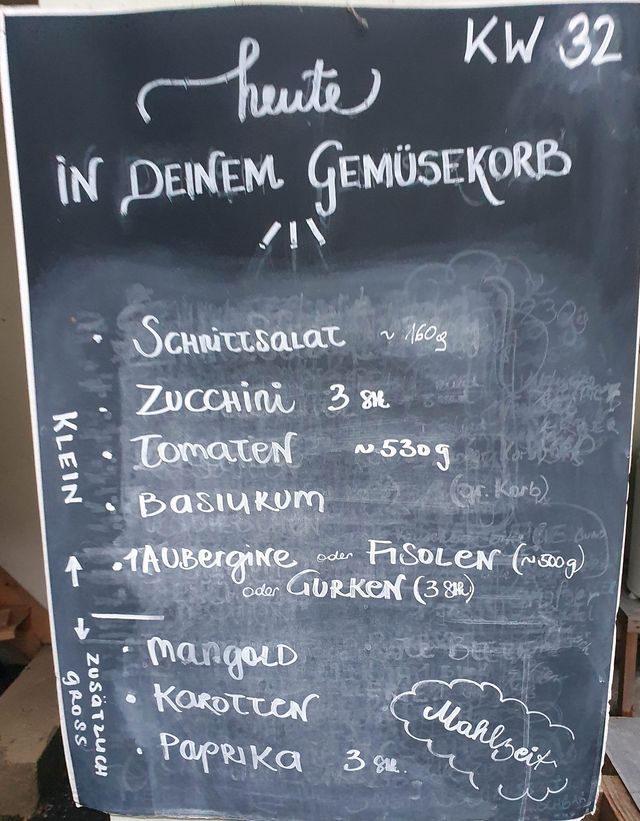 KW 32
heute
IN DEINEM GEMÜSEKORB
SCHNITTSALAT ~ 160g
ZUCCHINI 3 Stk
TOMATEN ~530g
BASILIKUM
(gr. Korb)
1 AUBERGINE oder FISOLEN (~500g)
oder GURKEN (3 Stk)
MANGOLD
KAROTTEN
PAPRIKA 3 Stk.
Mahlzeit
KLEIN
ZUSÄTZLICH
GROSS